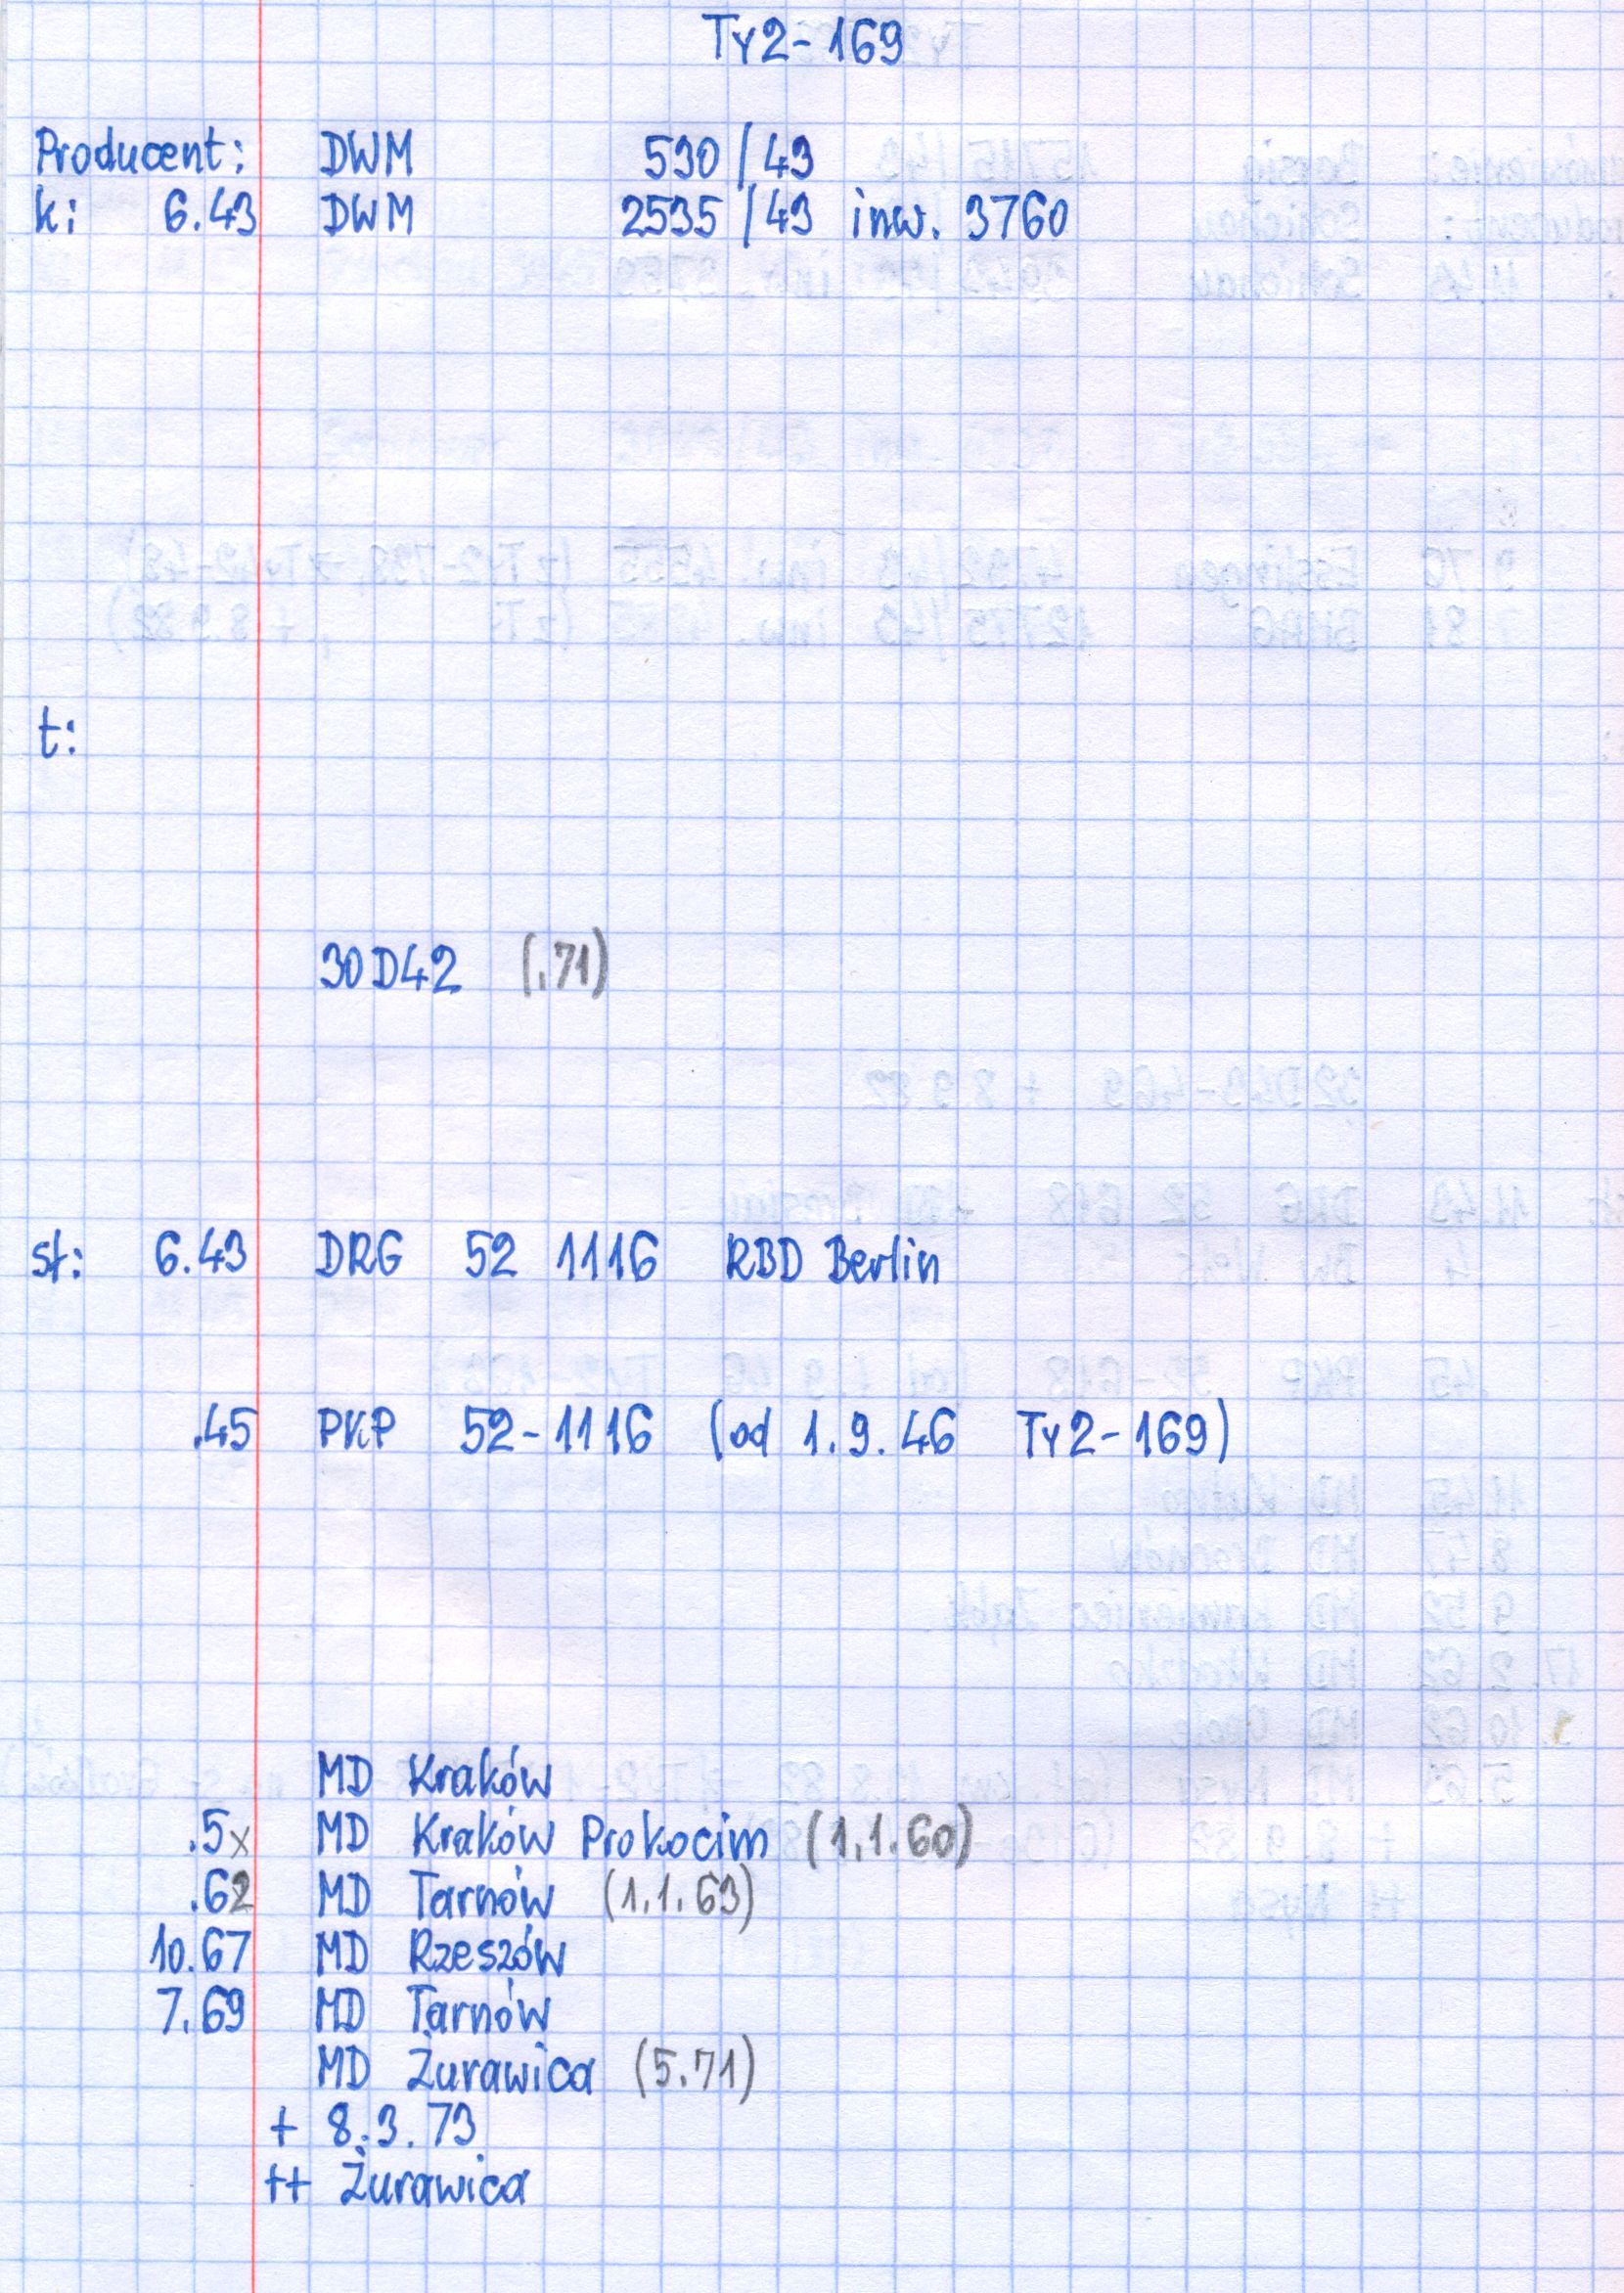 Ty2-169
Producent: DWM 530/43
k: 6.43 DWM 2535/43 inw. 3760
t:
30D42 (.71)
st: 6.43 DRG 52 1116 RBD Berlin
.45 PKP 52-1116 (od 1.9.46 Ty2-169)
MD Kraków
.5x MD Kraków Prokocim (1.1.60)
.62 MD Tarnów (1.1.63)
10.67 MD Rzeszów
7.69 MD Tarnów
MD Żurawica (5.71)
+ 8.3.73
++ Żurawica